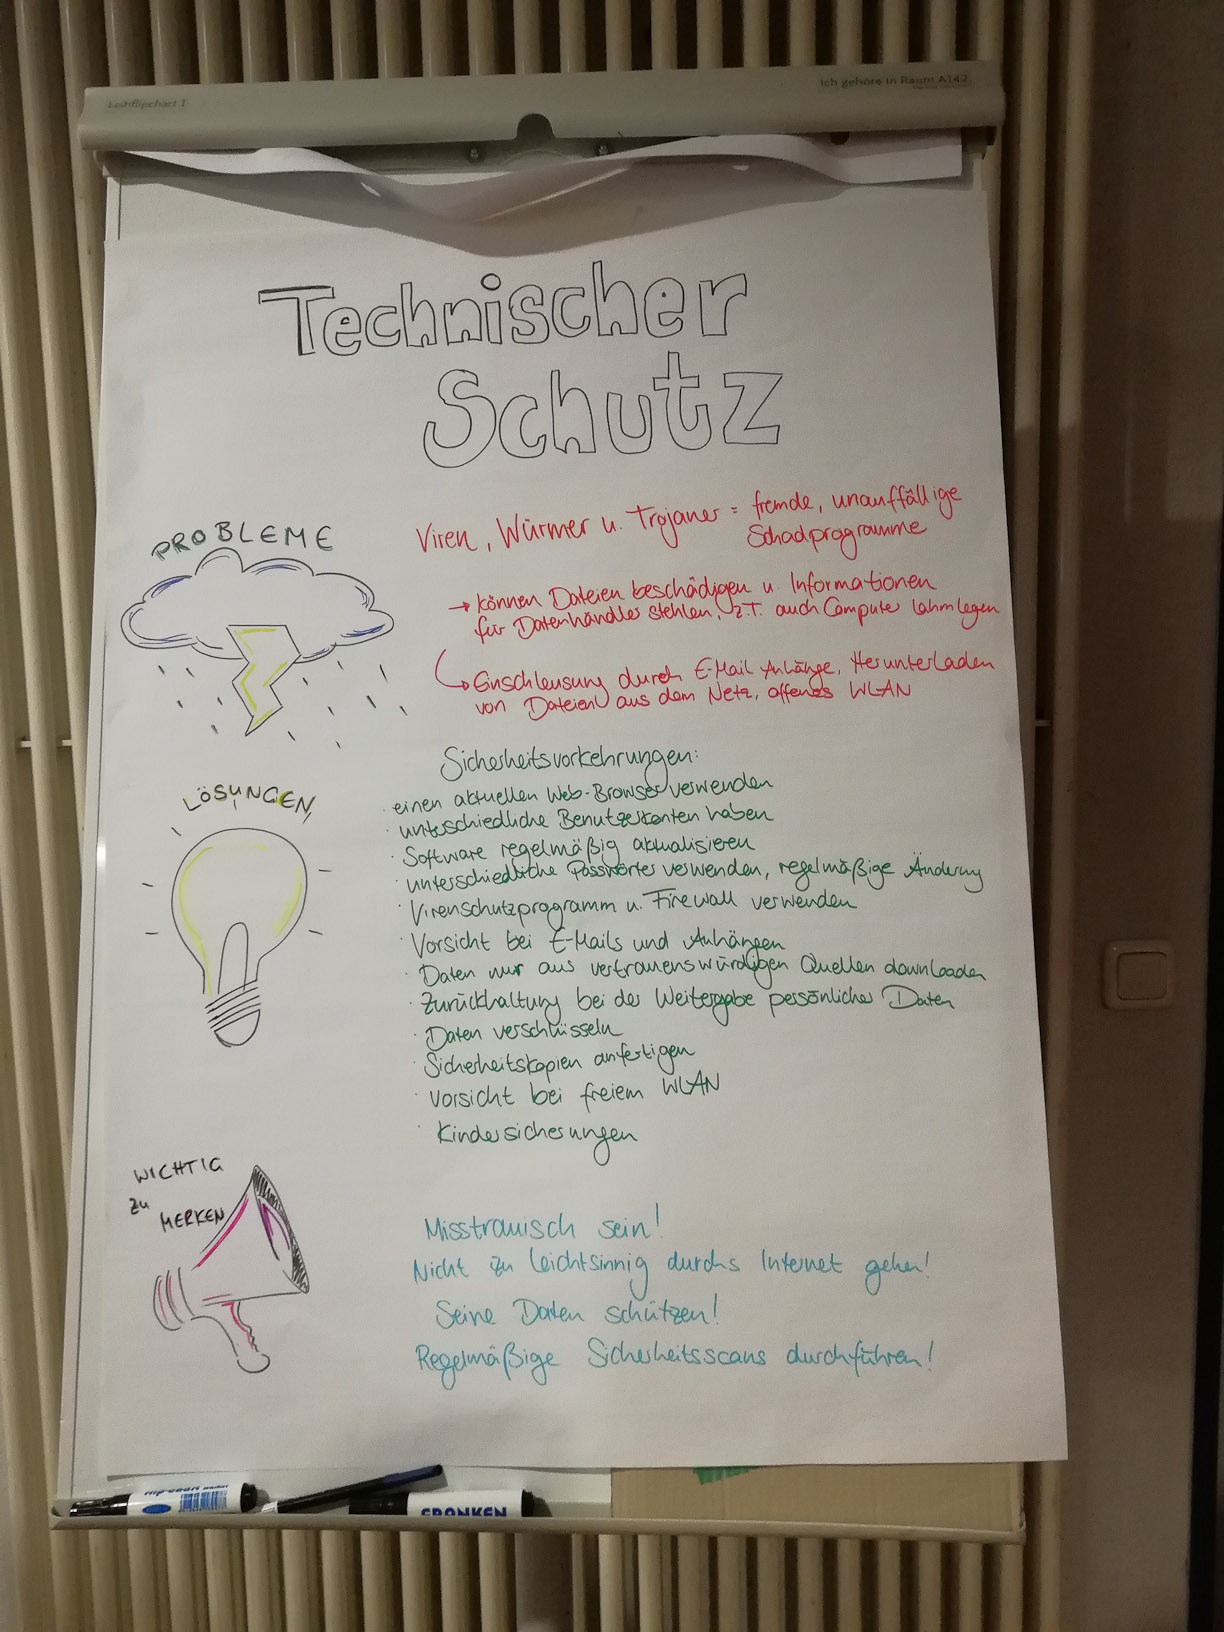 Leihflipchart 1
Ich gehöre in Raum A142
Technischer
Schutz
PROBLEME
Viren, Würmer u. Trojaner = fremde, unauffällige
Schadprogramme
→ können Dateien beschädigen u. Informationen
für Datenhändler stehlen, z.T. auch Computer lahmlegen
→ Einschleusung durch E-Mail Anhänge, Herunterladen
von Dateien aus dem Netz, offenes WLAN
LÖSUNGEN
Sicherheitsvorkehrungen:
· einen aktuellen Web-Browser verwenden
· unterschiedliche Benutzerkonten haben
· Software regelmäßig aktualisieren
· unterschiedliche Passwörter verwenden, regelmäßige Änderung
· Virenschutzprogramm u. Firewall verwenden
· Vorsicht bei E-Mails und Anhängen
· Daten nur aus vertrauenswürdigen Quellen downloaden
· Zurückhaltung bei der Weitergabe persönlicher Daten
· Daten verschlüsseln
· Sicherheitskopien anfertigen
· Vorsicht bei freiem WLAN
· Kindersicherungen
WICHTIG
ZU
MERKEN
Misstrauisch sein!
Nicht zu leichtsinnig durchs Internet gehen!
Seine Daten schützen!
Regelmäßige Sicherheitsscans durchführen!
FRANKEN